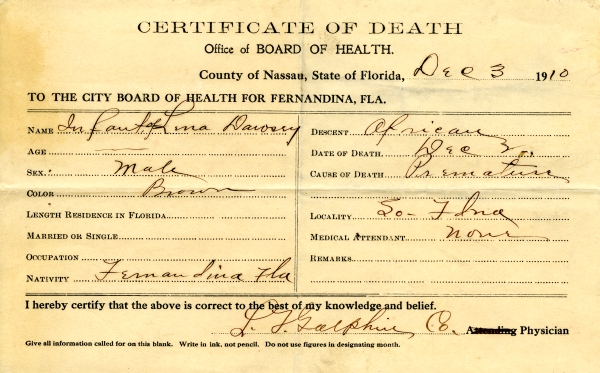 CERTIFICATE OF DEATH
Office of BOARD OF HEALTH.
County of Nassau, State of Florida, Dec 3 1910
TO THE CITY BOARD OF HEALTH FOR FERNANDINA, FLA.
NAME Infant of Lina Dawsey
AGE
SEX. Male
COLOR Brown
LENGTH RESIDENCE IN FLORIDA
MARRIED OR SINGLE
OCCUPATION
NATIVITY Fernandina Fla
DESCENT African
DATE OF DEATH. Dec
CAUSE OF DEATH Premature
LOCALITY So- Fdna
MEDICAL ATTENDANT none
REMARKS
I hereby certify that the above is correct to the best of my knowledge and belief.
Co. Attending Physician
Give all information called for on this blank. Write in ink, not pencil. Do not use figures in designating month.